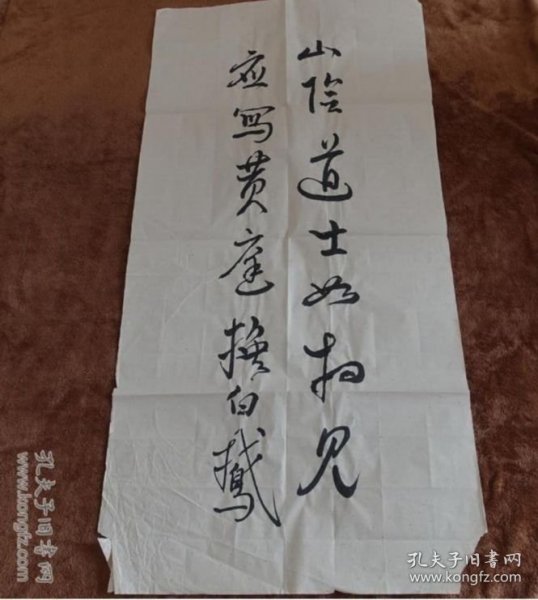 山陰道士如相見
应寫黄庭換白鵝
孔夫子旧书网
www.kongfz.com
孔夫子旧书网
www.kongfz.com